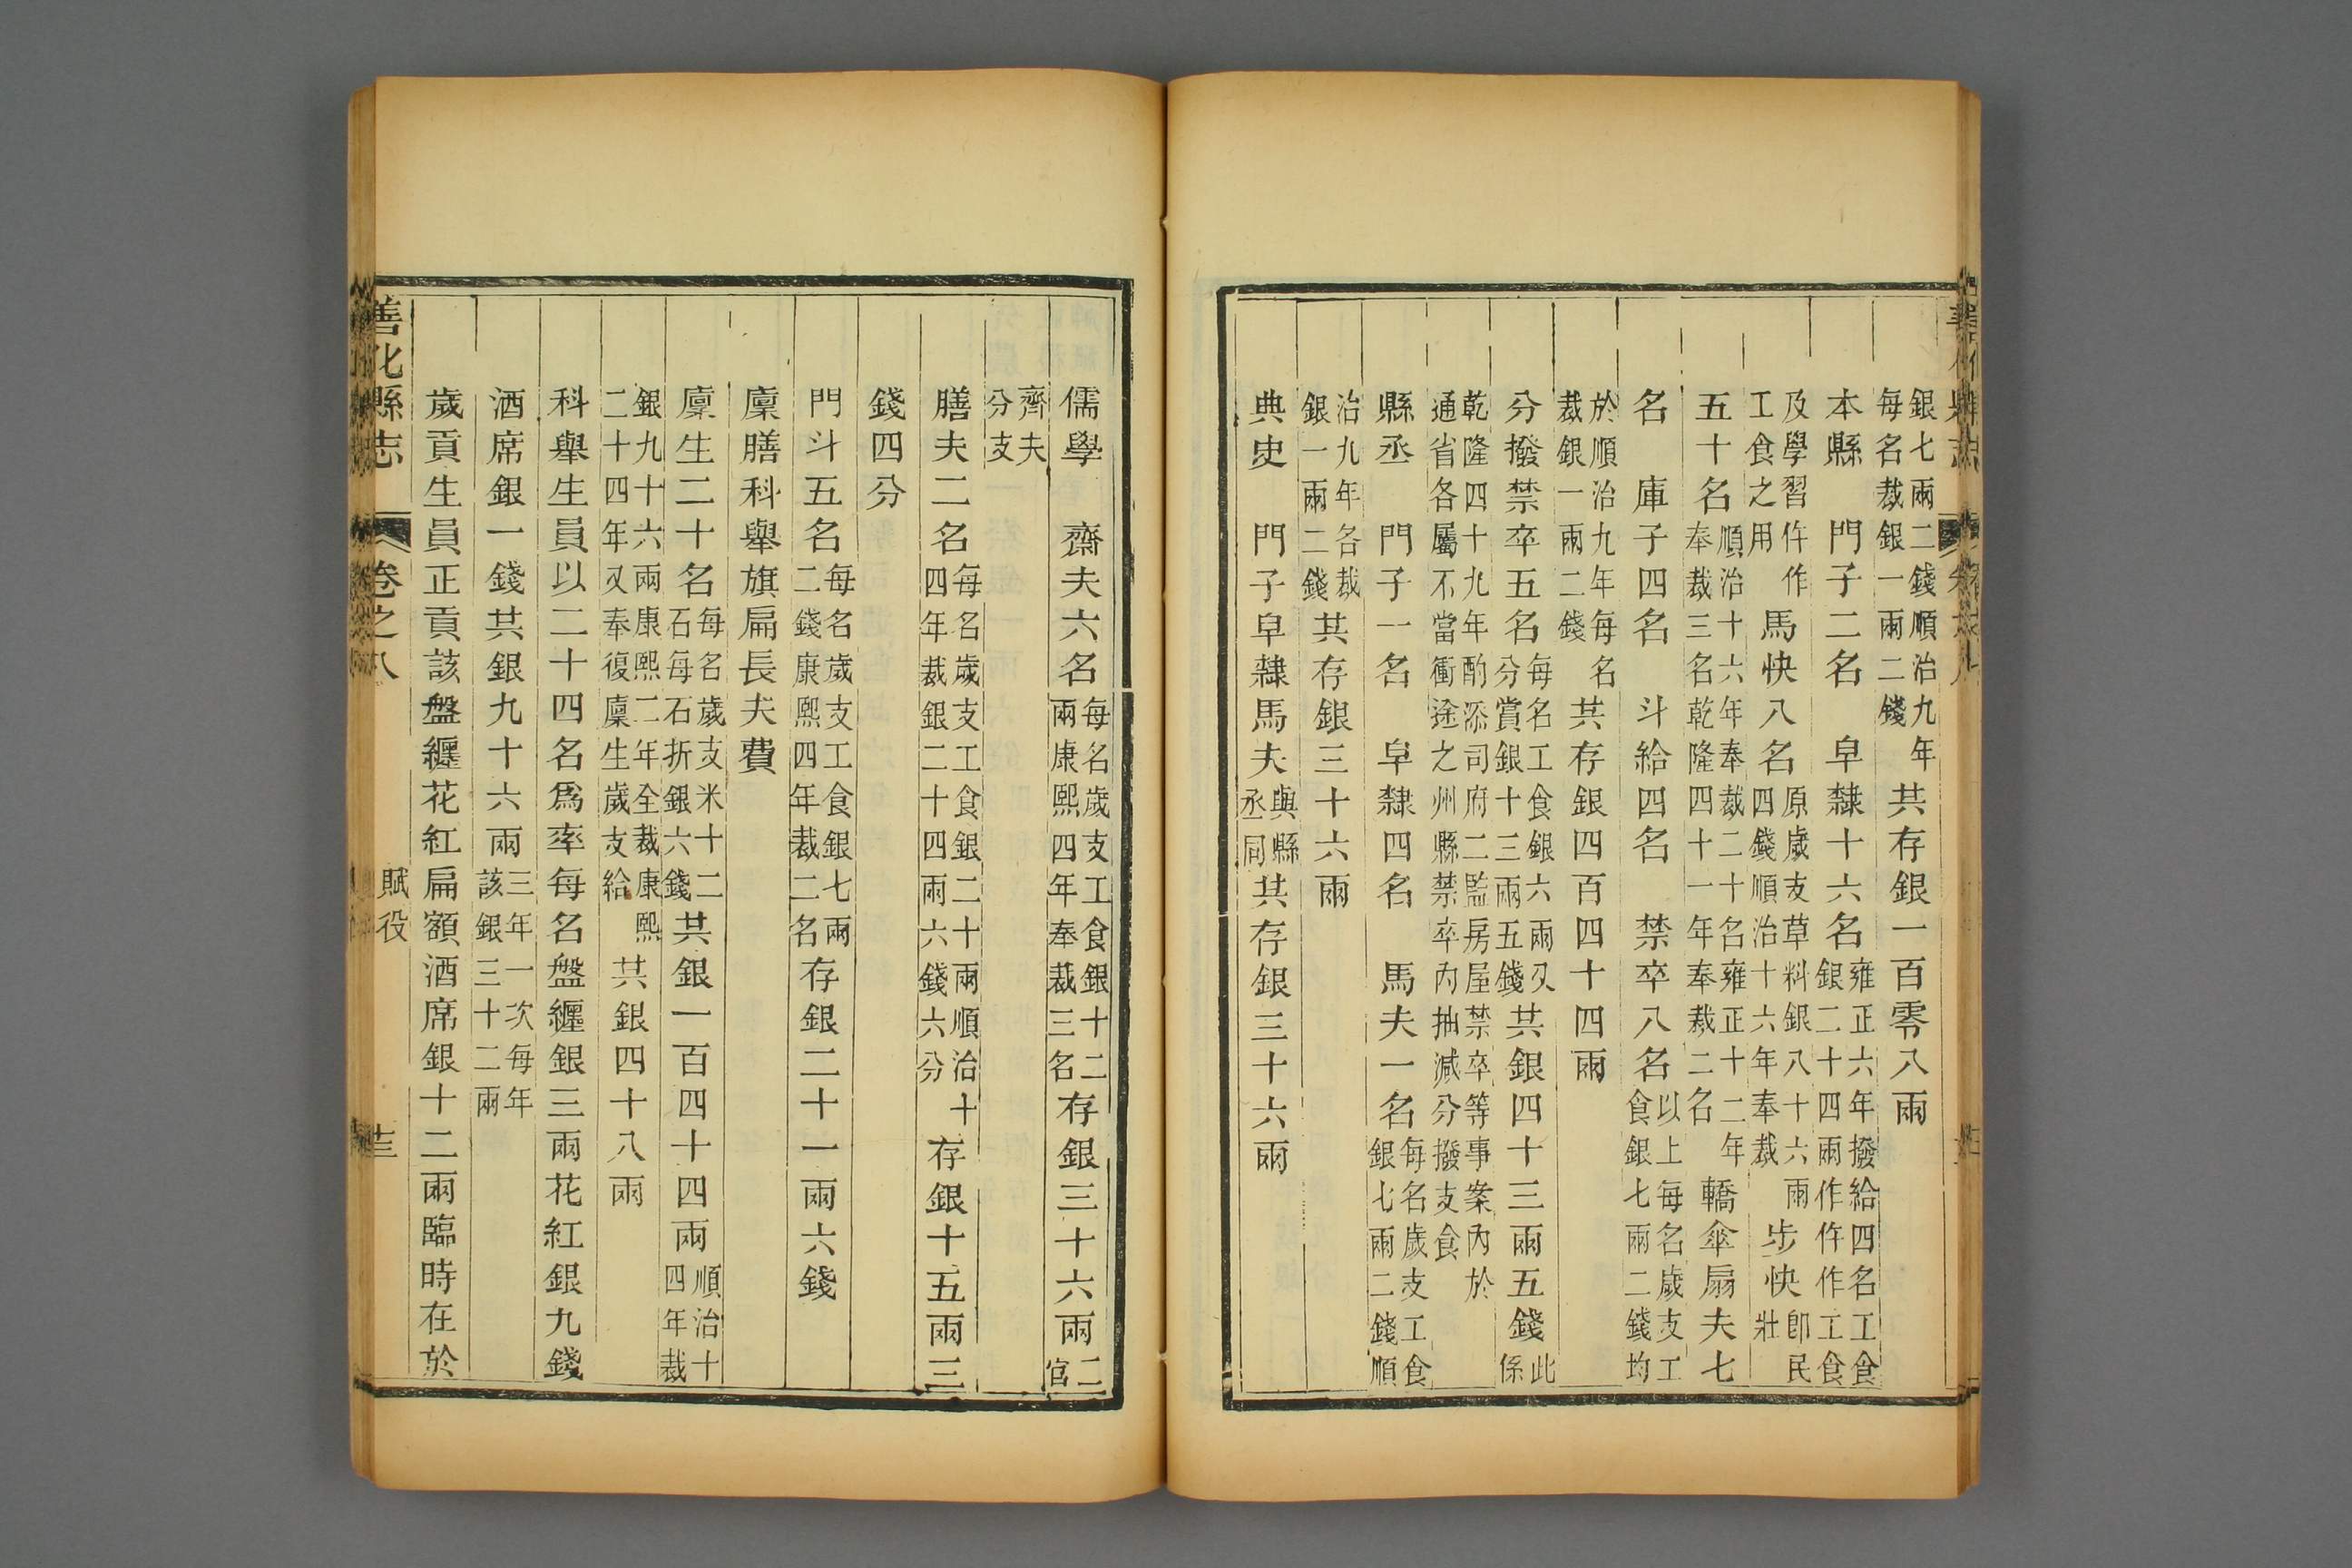 銀七兩二錢順治九年
每名裁銀一兩二錢
共存銀一百零八兩
本縣　門子二名　皁隸十六名
雍正六年撥給四名工食
銀二十四兩作仵作工食
及學習仵作
工食之用
馬快八名
原歲支草料銀八十六兩
四錢順治十六年奉裁
步快
卽民
壯
五十名
順治十六年奉裁二十名雍正十二年
奉裁三名乾隆四十一年奉裁二名
轎傘扇夫七
名　庫子四名　斗給四名　禁卒八名
以上每名歲支工
食銀七兩二錢均
於順治九年每名
裁銀一兩二錢
共存銀四百四十四兩
分撥禁卒五名
每名工食銀六兩又
分賞銀十三兩五錢
共銀四十三兩五錢
此
係
乾隆四十九年酌添司府二監房屋禁卒等事案內於
通省各屬不當衝途之州縣禁卒內抽減分撥支食
縣丞　門子一名　皁隸四名　馬夫一名
每名歲支工食
銀七兩二錢順
治九年各裁
銀一兩二錢
共存銀三十六兩
典史　門子皁隸馬夫
與縣
丞同
共存銀三十六兩
儒學　齋夫六名
每名歲支工食銀十二
兩康熙四年奉裁三名
存銀三十六兩
二
官
齊夫
分支
膳夫二名
每名歲支工食銀二十兩順治十
四年裁銀二十四兩六錢六分
存銀十五兩三
錢四分
門斗五名
每名歲支工食銀七兩
二錢康熙四年裁二名
存銀二十一兩六錢
廩膳科舉旗扁長夫費
廩生二十名
每名歲支米十二
石每石折銀六錢
共銀一百四十四兩
順治十
四年裁
銀九十六兩康熙二年全裁康熙
二十四年又奉復廩生歲支給
共銀四十八兩
科舉生員以二十四名爲率每名盤纏銀三兩花紅銀九錢
酒席銀一錢共銀九十六兩
三年一次每年
該銀三十二兩
歲貢生員正貢該盤纏花紅扁額酒席銀十二兩臨時在於
善化縣志　卷之八　賦役